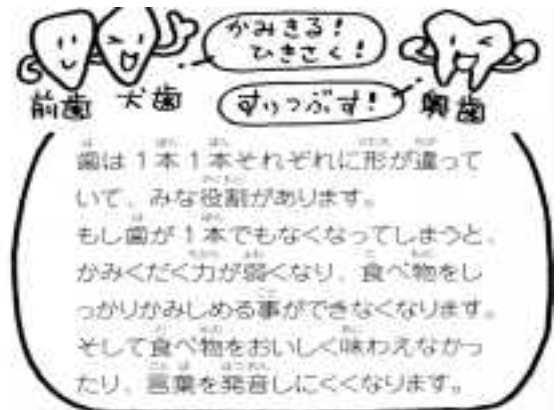 かみきる！
ひきさく！
前歯
犬歯
すりつぶす！
奥歯
歯は1本1本それぞれに形が違って
いて、みな役割があります。
もし歯が1本でもなくなってしまうと、
かみくだく力が弱くなり、食べ物をし
っかりかみしめる事ができなくなります。
そして食べ物をおいしく味わえなかっ
たり、言葉を発音しにくくなります。